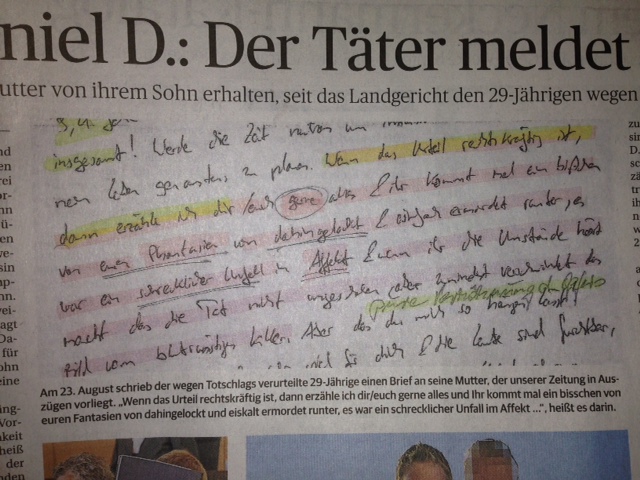 niel D.: Der Täter meldet
utter von ihrem Sohn erhalten, seit das Landgericht den 29-Jährigen wegen
insgesamt! Werde die Zeit nutzen um
mein Leben genaustens zu planen. Wenn das Urteil rechtskräftig ist,
dann erzähle ich dir/euch gerne alles & ihr kommt mal ein bißchen
von euren Phantasien von dahingelockt & eiskalt ermordet runter, es
war ein schrecklicher Unfall im Affekt & wenn ihr die Umstände hört
macht das die Tat nicht ungeschehen aber zumindest verschwindet das
Bild vom blutrünstigen Killer. Aber das du mich so hängen lässt!
viel für dich & die Leute sind furchtbar,
Am 23. August schrieb der wegen Totschlags verurteilte 29-Jährige einen Brief an seine Mutter, der unserer Zeitung in Aus-
zügen vorliegt. „Wenn das Urteil rechtskräftig ist, dann erzähle ich dir/euch gerne alles und Ihr kommt mal ein bisschen von
euren Fantasien von dahingelockt und eiskalt ermordet runter, es war ein schrecklicher Unfall im Affekt ...“, heißt es darin.